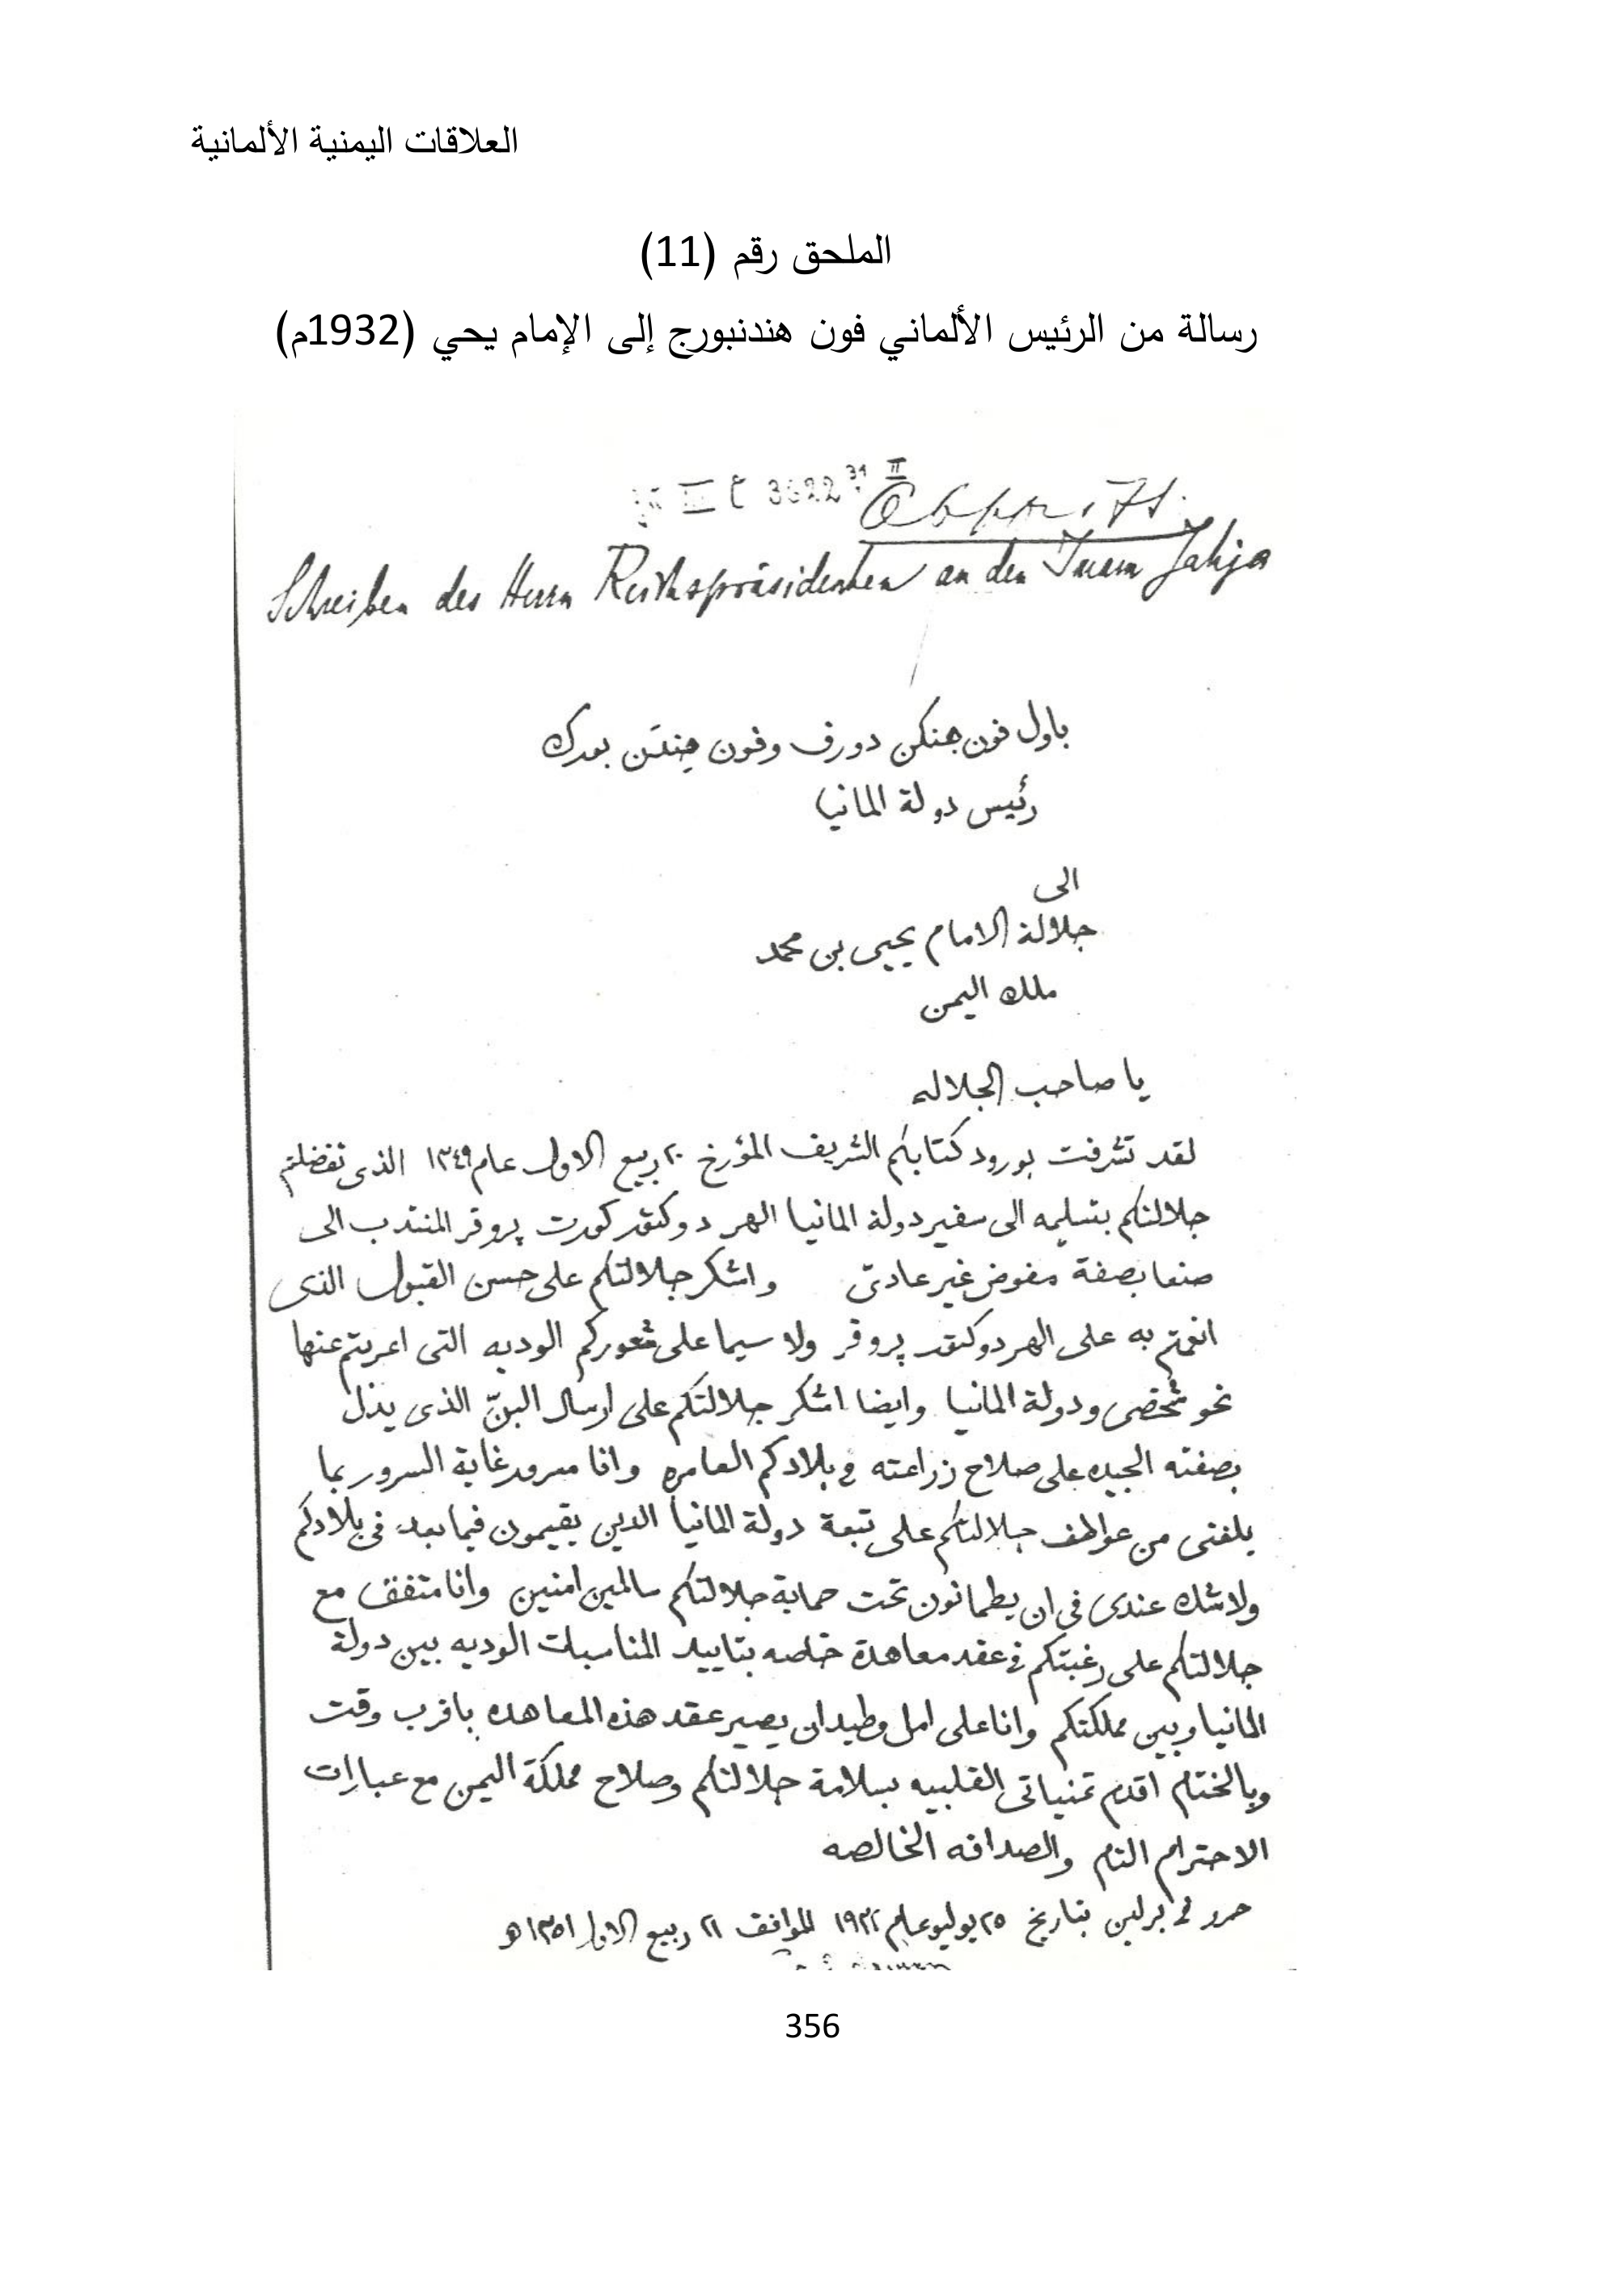 العلاقات اليمنية الألمانية
الملحق رقم (11)
رسالة من الرئيس الألماني فون هندنبورج إلى الإمام يحي (1932م)
III C 3622 31 II
Abschrift.
Schreiben des Herrn Reichspräsidenten an den Imam Jahja
باول فون هنكن دورف وفون هيندن بورك
رئيس دولة المانيا
الى
جلالة الامام يحيى بن محمد
ملك اليمن
يا صاحب الجلاله
لقد تشرفت بورود كتابكم الشريف المؤرخ ٢٠ ربيع الاول عام ١٣٤٩ الذى تفضلتم
جلالتكم بتسليمه الى سفير دولة المانيا الهر دوكتور كورت پروفر المنتدب الى
صنعا بصفة مفوض غير عادىّ واشكر جلالتكم على حسن القبول الذى
انعمتم به على الهر دوكتور پروفر ولا سيما على شعوركم الوديه التى اعربتم عنها
نحو شخصى ودولة المانيا وايضا اشكر جلالتكم على ارسال البنّ الذى يدل
بصفته الجيده على صلاح زراعته فى بلادكم العامره وانا مسرور غاية السرور بما
بلغنى من عواطف جلالتكم على تبعة دولة المانيا الدين يقيمون فيما بعد فى بلادكم
ولا شك عندى فى ان يطمانون تحت حماية جلالتكم سالمين امنين وانا متفق مع
جلالتكم على رغبتكم فى عقد معاهدة خاصه بتاييد المناسبات الوديه بين دولة
المانيا وبين مملكتكم وانا على امل وطيد ان يصير عقد هذه المعاهده باقرب وقت
وبالختام اقدم تمنياتى القلبيه بسلامة جلالتكم وصلاح مملكة اليمن مع عبارات
الاحترام التام والصداقه الخالصه
حرر فى برلين بتاريخ ٢٥ يوليو عام ١٩٣٢ الموافق ٢١ ربيع الاول ١٣٥١ هـ
356